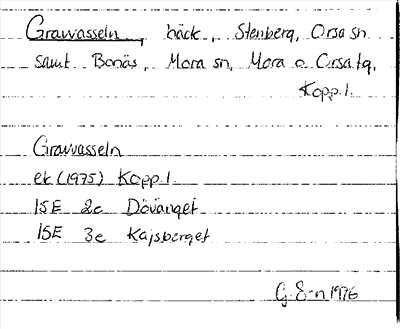 Grawasseln, bäck, Stenberg, Orsa sn
samt Bonäs, Mora sn, Mora o Orsa tg,
Kopp. l.
Grawasseln
ek (1975) Kopp. l.
15E 2c Dövanget
15E 3c Kajsberget
G. E-n 1976